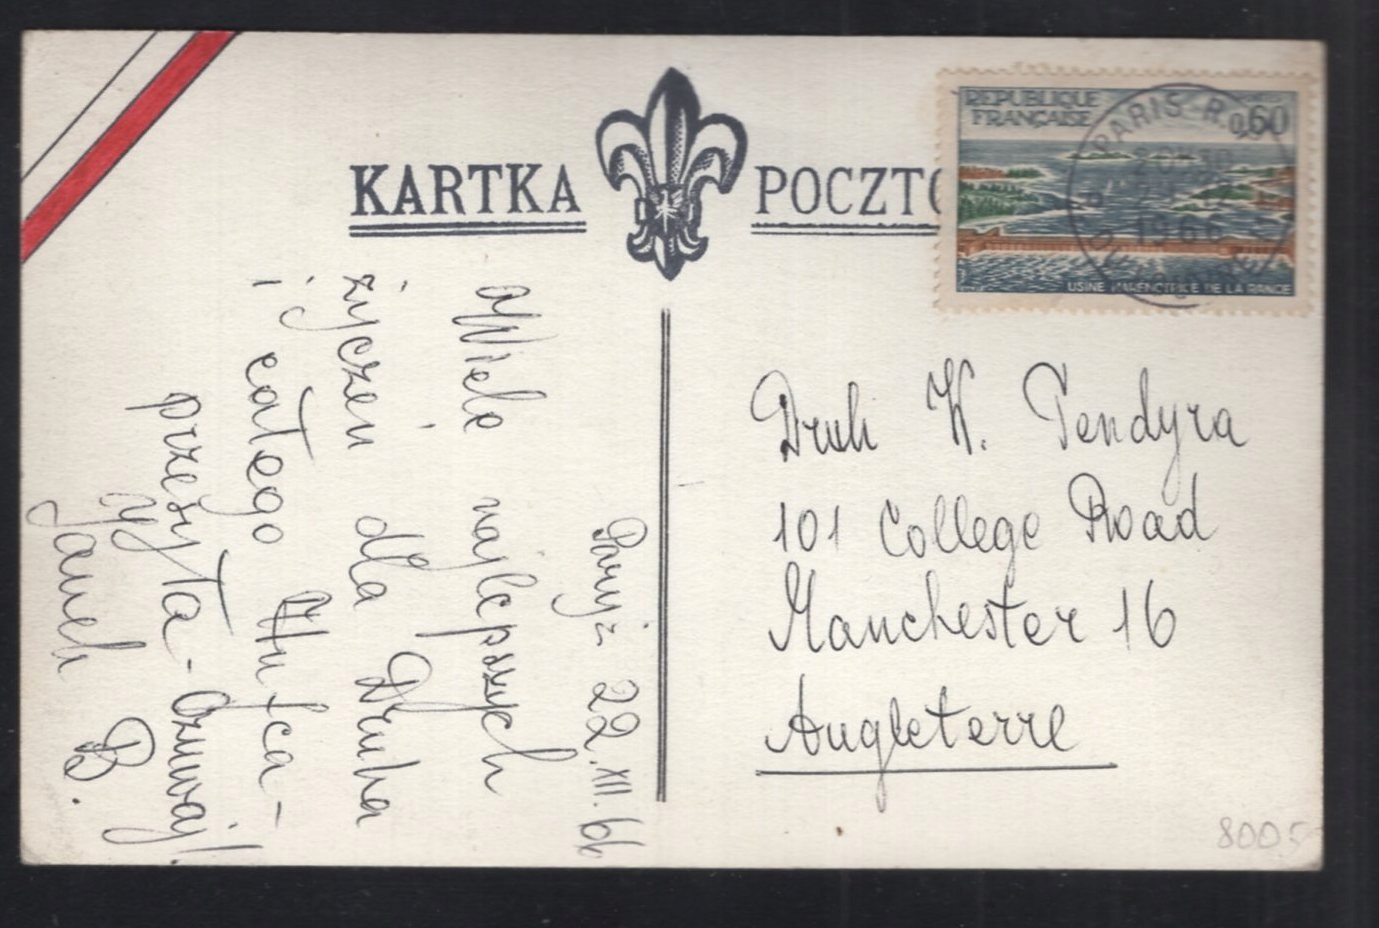 KARTKA POCZTO
REPUBLIQUE
FRANÇAISE
0,60
PARIS-R.
1966
USINE MARÉMOTRICE DE LA RANCE
Paryż 22.XII.66
Wiele najlepszych
życzeń dla Druha
i całego Hufca -
przesyła - Czuwaj!
Janek B.
Druh W. Pendyra
101 College Road
Manchester 16
Angleterre
8005